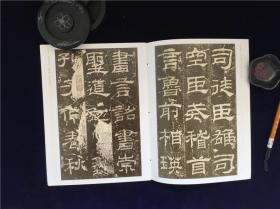 司徒臣雄司
空臣戒稽首
言魯前相瑛
書言詔書崇
聖道
孔子作春秋